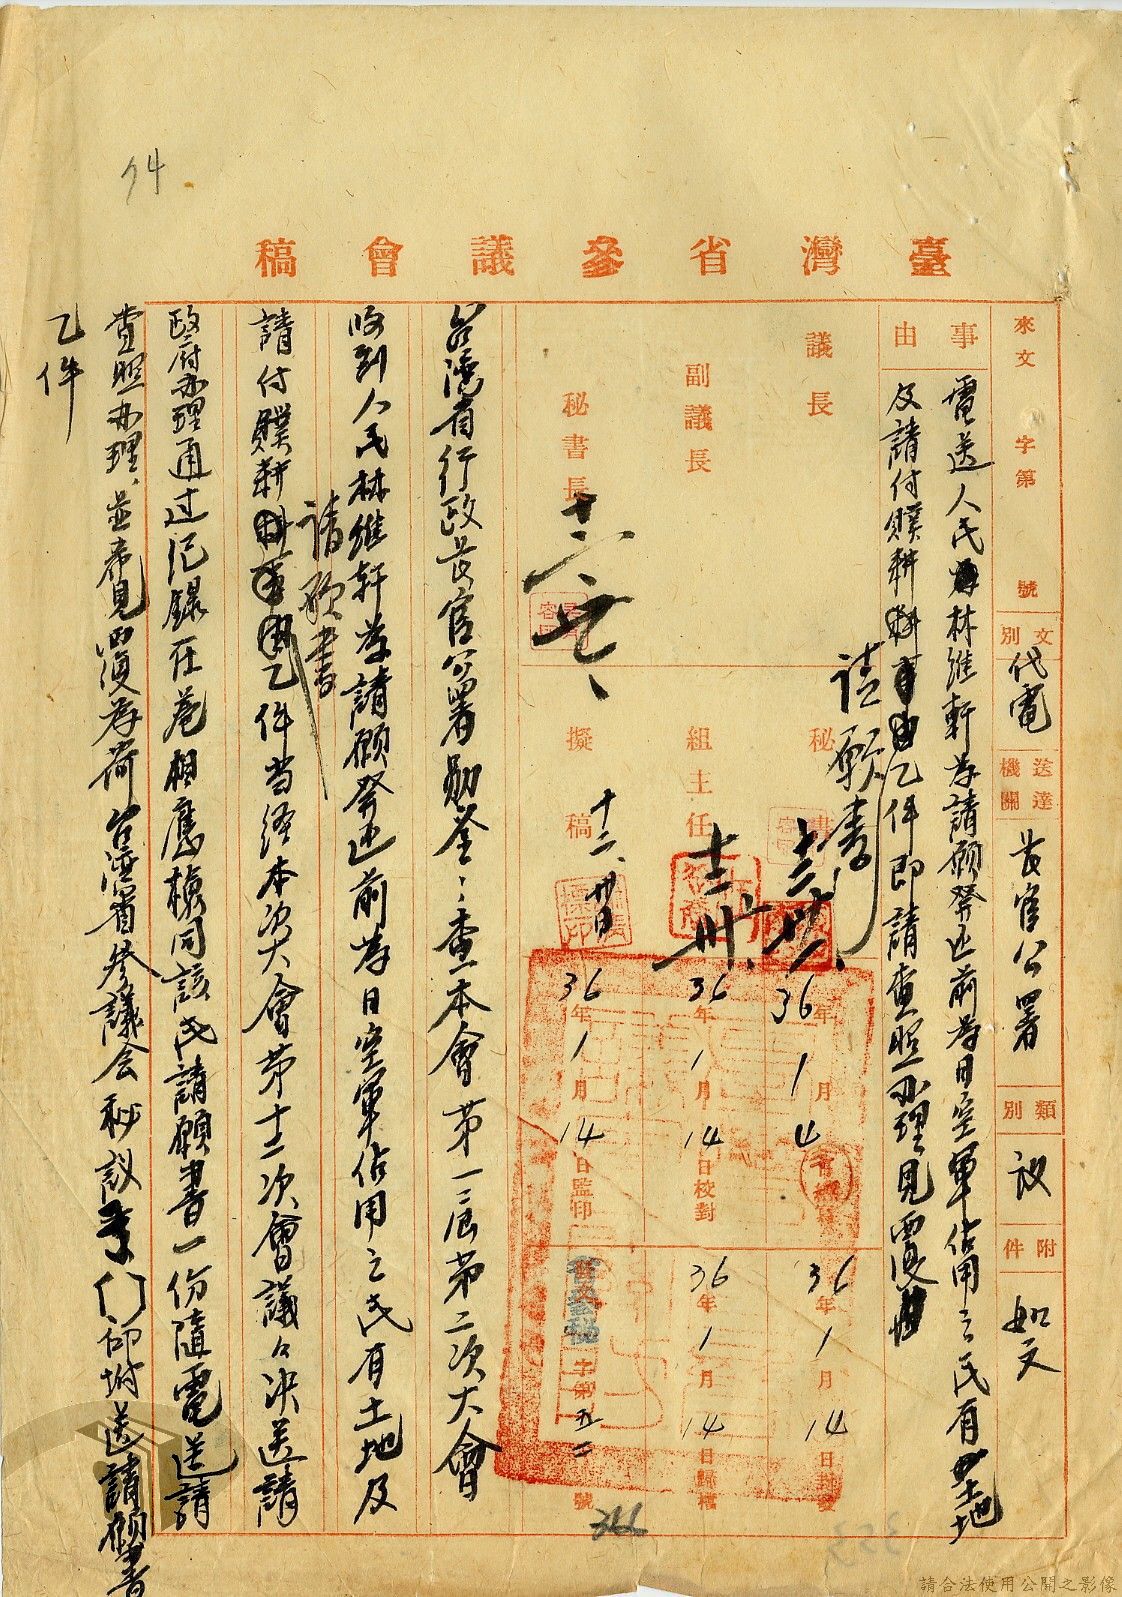 臺灣省參議會稿
來文 字第 號
文別 代電
送達機關 長官公署
類別
附件 如文
事由
電送人民林維軒為請願發还前為日空軍佔用之民有土地
及請付贌耕請願書乙件即請查照办理見覆由
議長
副議長
秘書長
秘書
組主任
擬稿
十二、廿日
36年1月4日繕寫
36年1月14日校對
36年1月14日監印
36年1月14日封發
36年1月14日歸檔
字第五二號
台湾省行政長官公署勛鉴：查本會第一屆第二次大會
收到人民林維軒為請願發还前為日空軍佔用之民有土地及
請付贌耕請願書乙件当经本次大會第十二次會議議决送請
政府办理通过记録在卷相應檢同該民請願書一份隨電送請
查照办理、並希見覆為荷台湾省參議会秘議印附送請願書
乙件
74
請合法使用公開之影像